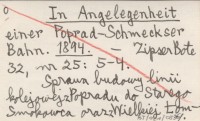 o
In Angelegenheit
einer Poprad-Schmeckser
Bahn. 1894. — Zipser Bote
32, nr 25: 5-4.
Sprawa budowy linii
kolejowej z Popradu do Starego
Smokowca oraz z Wielkiej Łom-